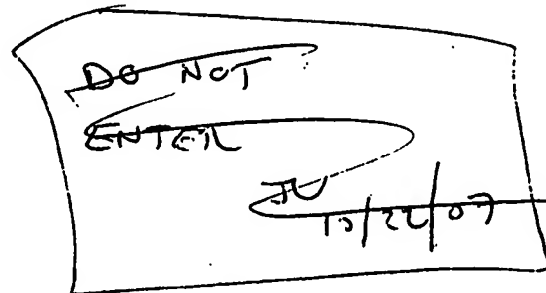 DO NOT
ENTER
JV
10/22/07